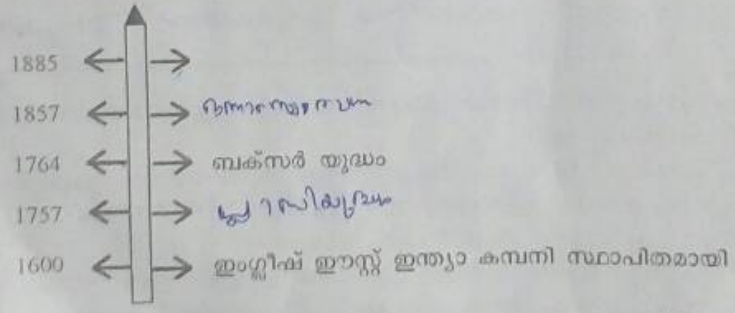 1885
1857 ഒന്നാം സ്വാതന്ത്ര്യ
1764 ബക്സർ യുദ്ധം
1757 പ്ലാസി യുദ്ധം
1600 ഇംഗ്ലീഷ് ഈസ്റ്റ് ഇന്ത്യാ കമ്പനി സ്ഥാപിതമായി